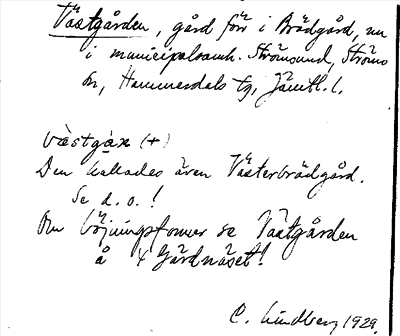 Västgården, gård förr i Brädgård, nu
i municipalsamh. Strömsund, Ströms
sn, Hammerdals tg, Jämtl. l.
västgàṇ (+)
Den kallades även Västerbrädgård.
Se d. o.!
Om böjningsformer se Västgården
å 4 Gärdnäset!
C. Lindberg 1929.